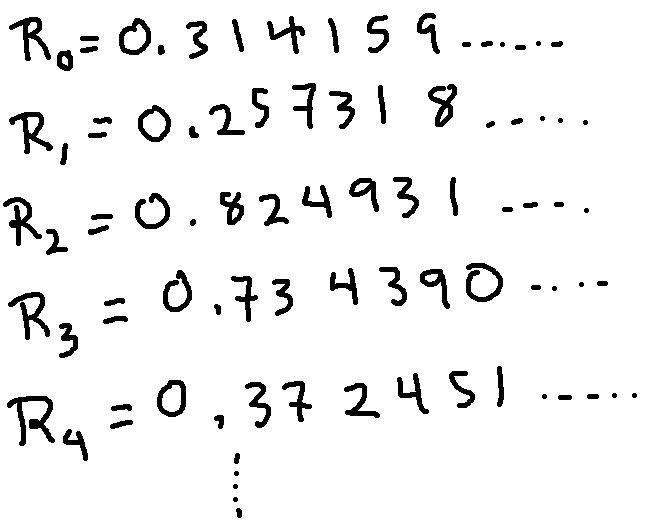 R₀ = 0.314159......
R₁ = 0.257318......
R₂ = 0.824931.....
R₃ = 0.734390.....
R₄ = 0.372451......
⋮